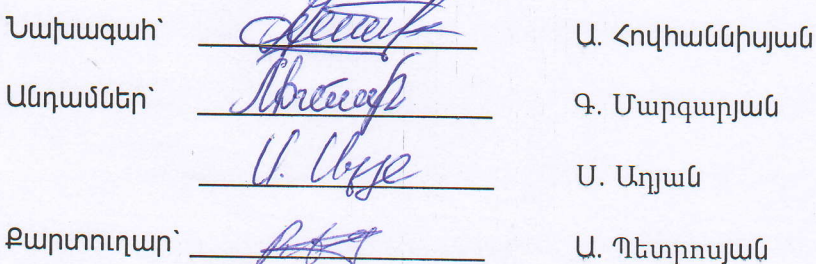 Նախագահ՝ Ա. Հովհաննիսյան
Անդամներ՝ Գ. Մարգարյան
Ս. Աղյան
Քարտուղար՝ Ա. Պետրոսյան